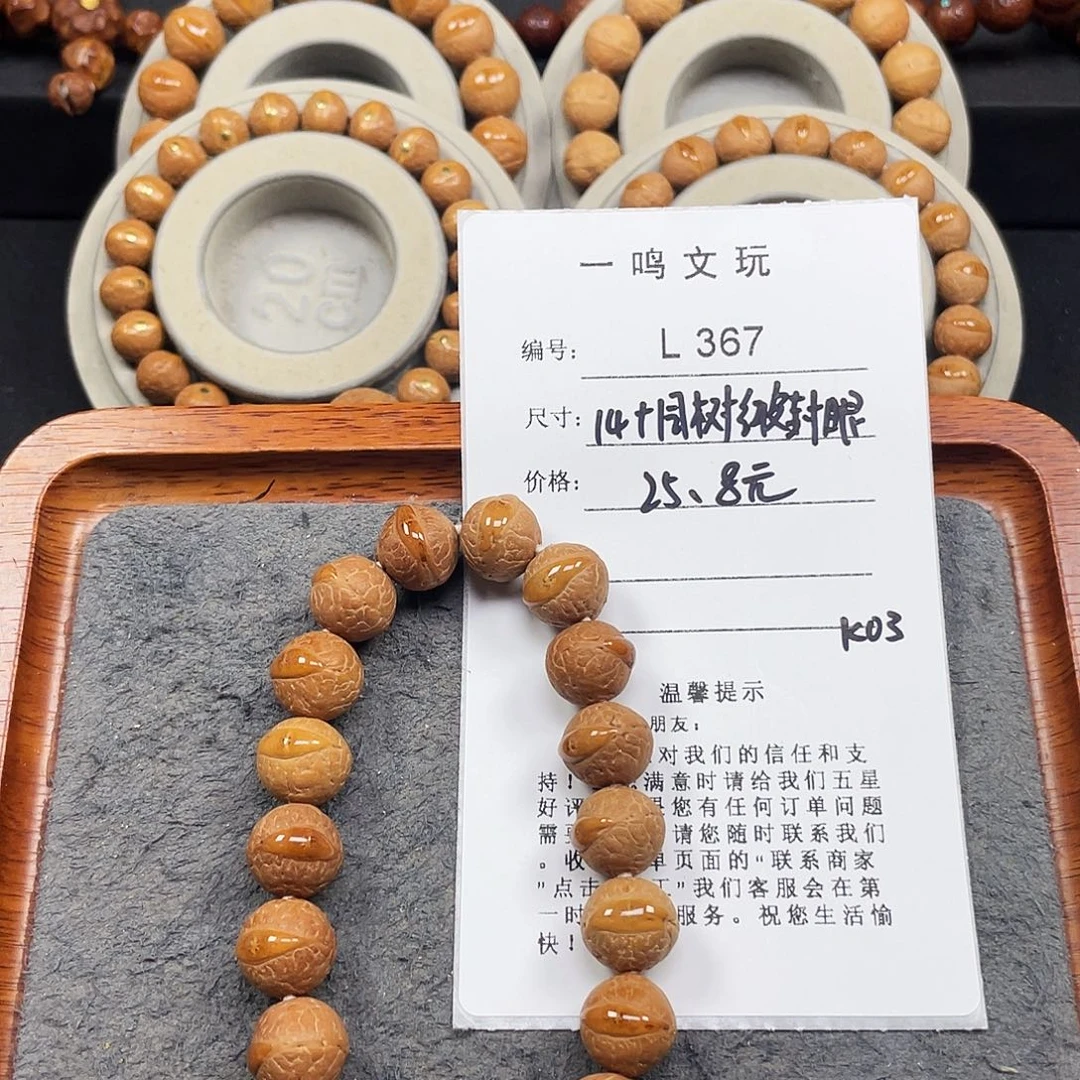 20
cm
一鸣文玩
编号: L 367
尺寸: 14+目树纹封眼
价格: 25、8元
K03
温馨提示
朋友:
对我们的信任和支
持! 满意时请给我们五星
好评 是您有任何订单问题
需要 请您随时联系我们
。收 单页面的“联系商家
”点击 工”我们客服会在第
一时 服务。祝您生活愉
快!